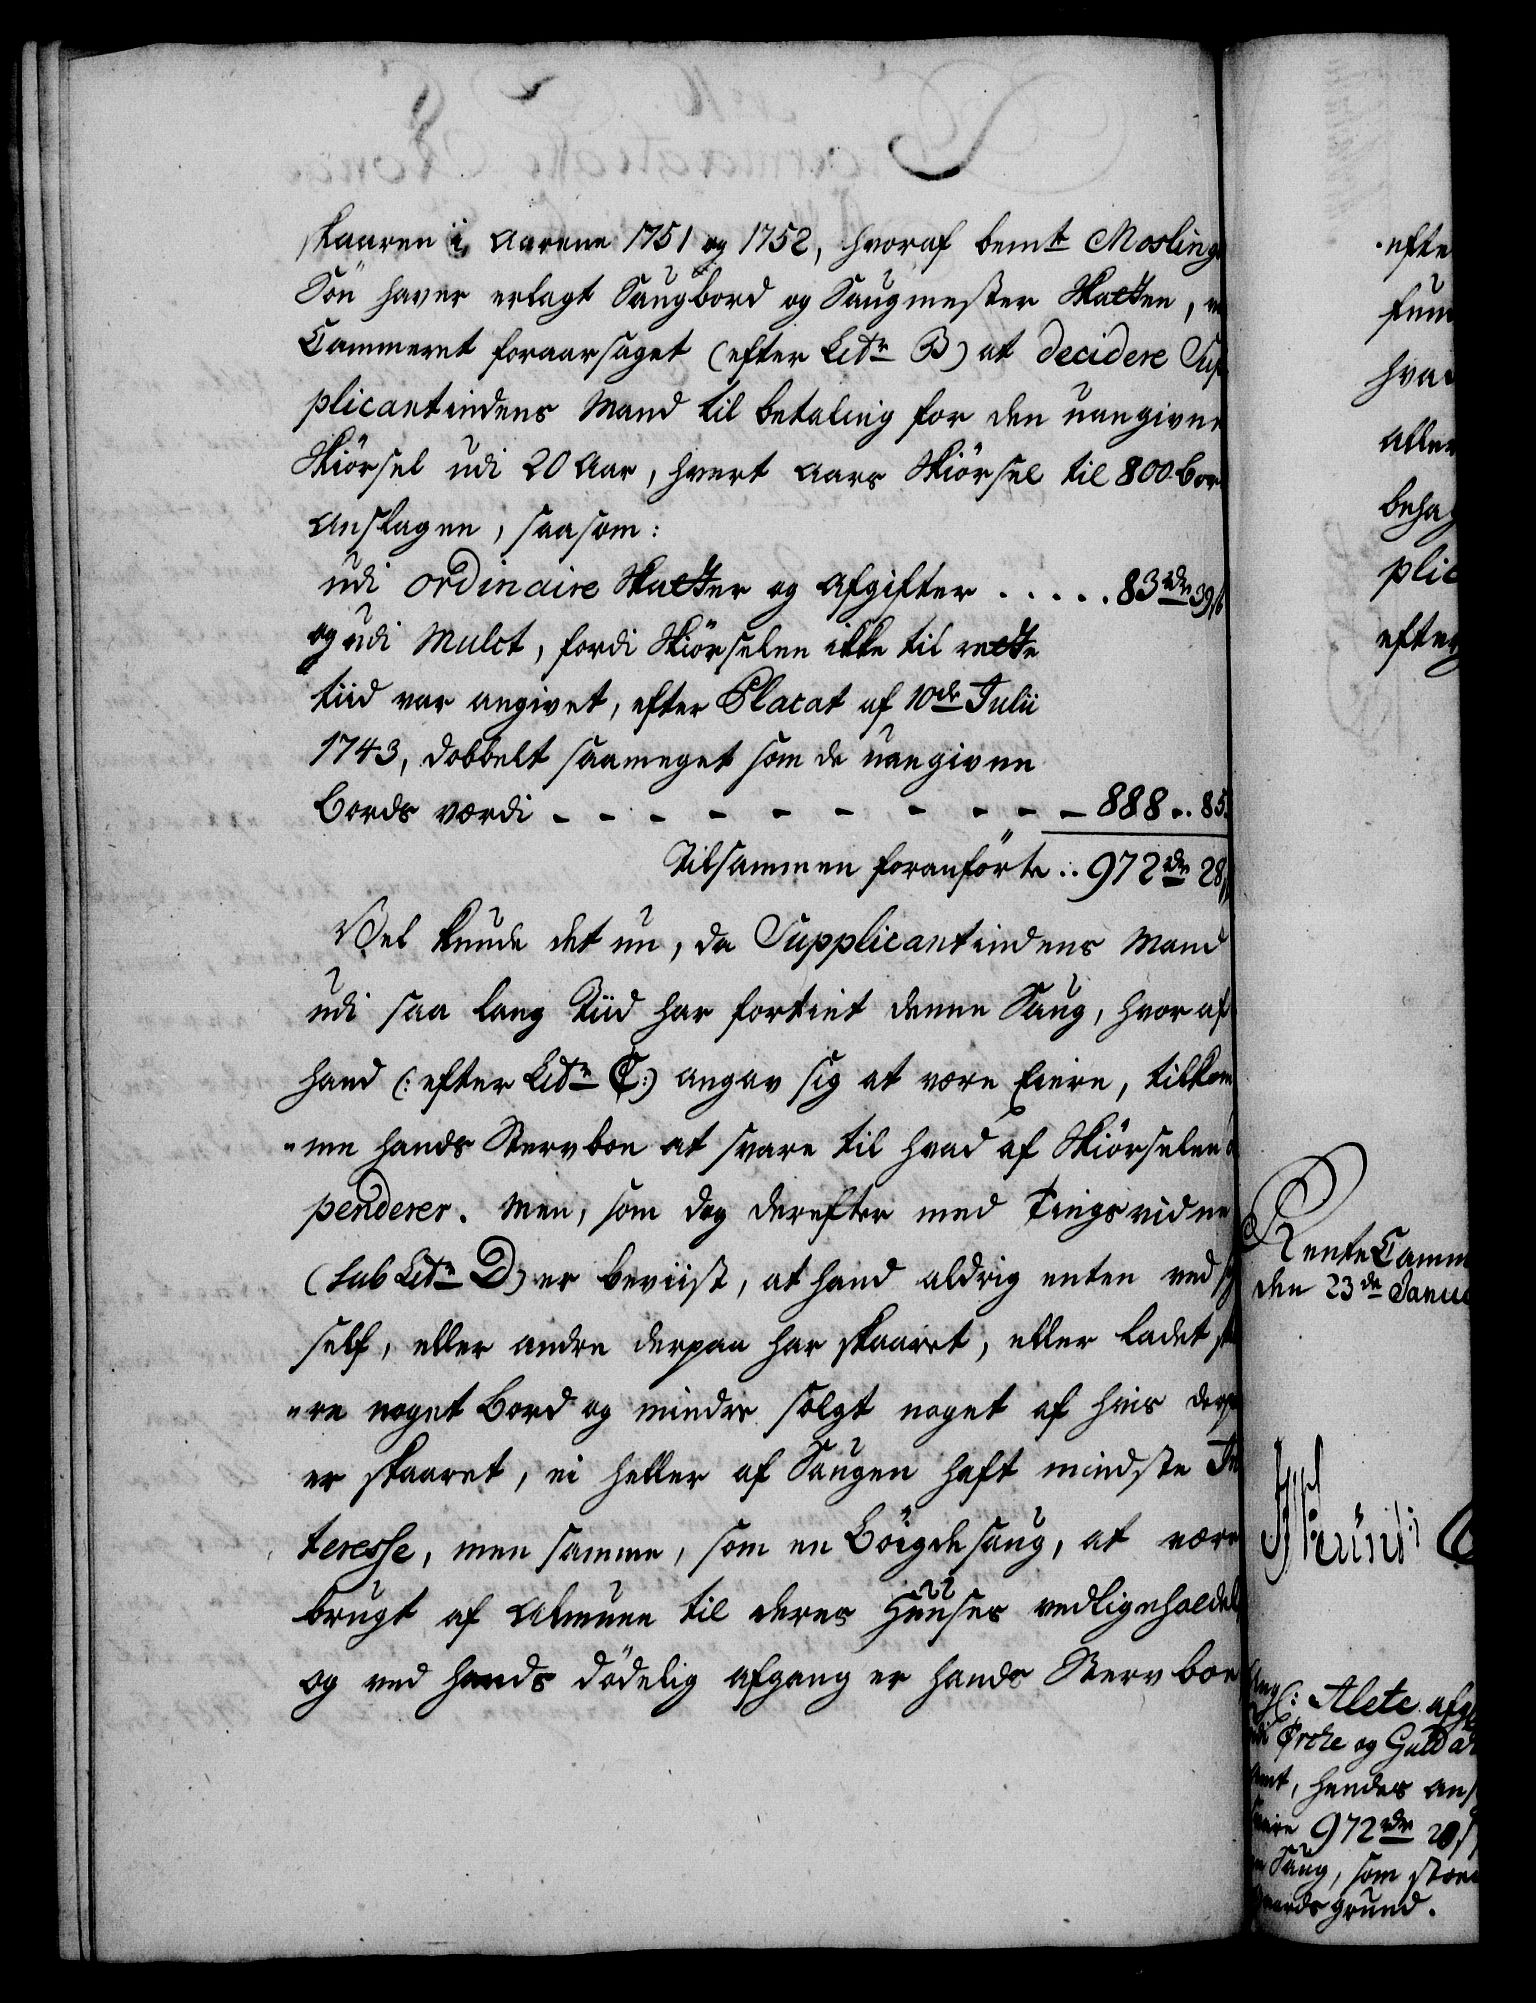 skaaren i Aarene 1751 og 1752, hvoraf bemte Mosling
Søn haver erlagt Saugbord og Saugmester Skatten,
Cammeret foraarsaget (efter Litr B) at decidere Sup
plicantindens Mand til betaling for den uangivne
Skiørsel udi 20 Aar, hvert Aars Skiørsel til 800 bor
anslagen, saasom:
udi ordinaire Skatter og Afgifter ..... 83 rdr 39 ß
og udi Mulct, fordi Skiørselen ikke til rette
tiid var angivet, efter Placat af 10de Julii
1743, dobbelt saameget som de uangivne
Bords værdi - - - - - - - - - 888 .. 85
Tilsammen foranførte .. 972 rdr 28
Vel kunde det nu, da Supplicantindens Mand
udi saa lang Tiid har fortiet denne Saug, hvoraf
hand (: efter Litr C:) angav sig at være Eiere, tilkom
-me hands Stervboe at svare til hvad af Skiørselen
penderer. Men, som dog derefter med Tingsvidne
(sub Litr D) er beviist, at hand aldrig enten ved
self, eller andre derpaa har skaaret, eller ladet
-re noget Bord og mindre solgt noget af hvis
er skaaret, ei heller af Saugen haft mindste In
teresse, men samme, som en Bøigdesaug, at være
brugt af Almuen til deres Huuses vedligeholdel
og ved hands dødelig afgang er hands Stervboe
efte
hva
aller
behag
plic
efter
RenteCamm
den 23de Janua
Alete
og Guld
hendes an
972 rdr 28 ß
Saug, som
grund.